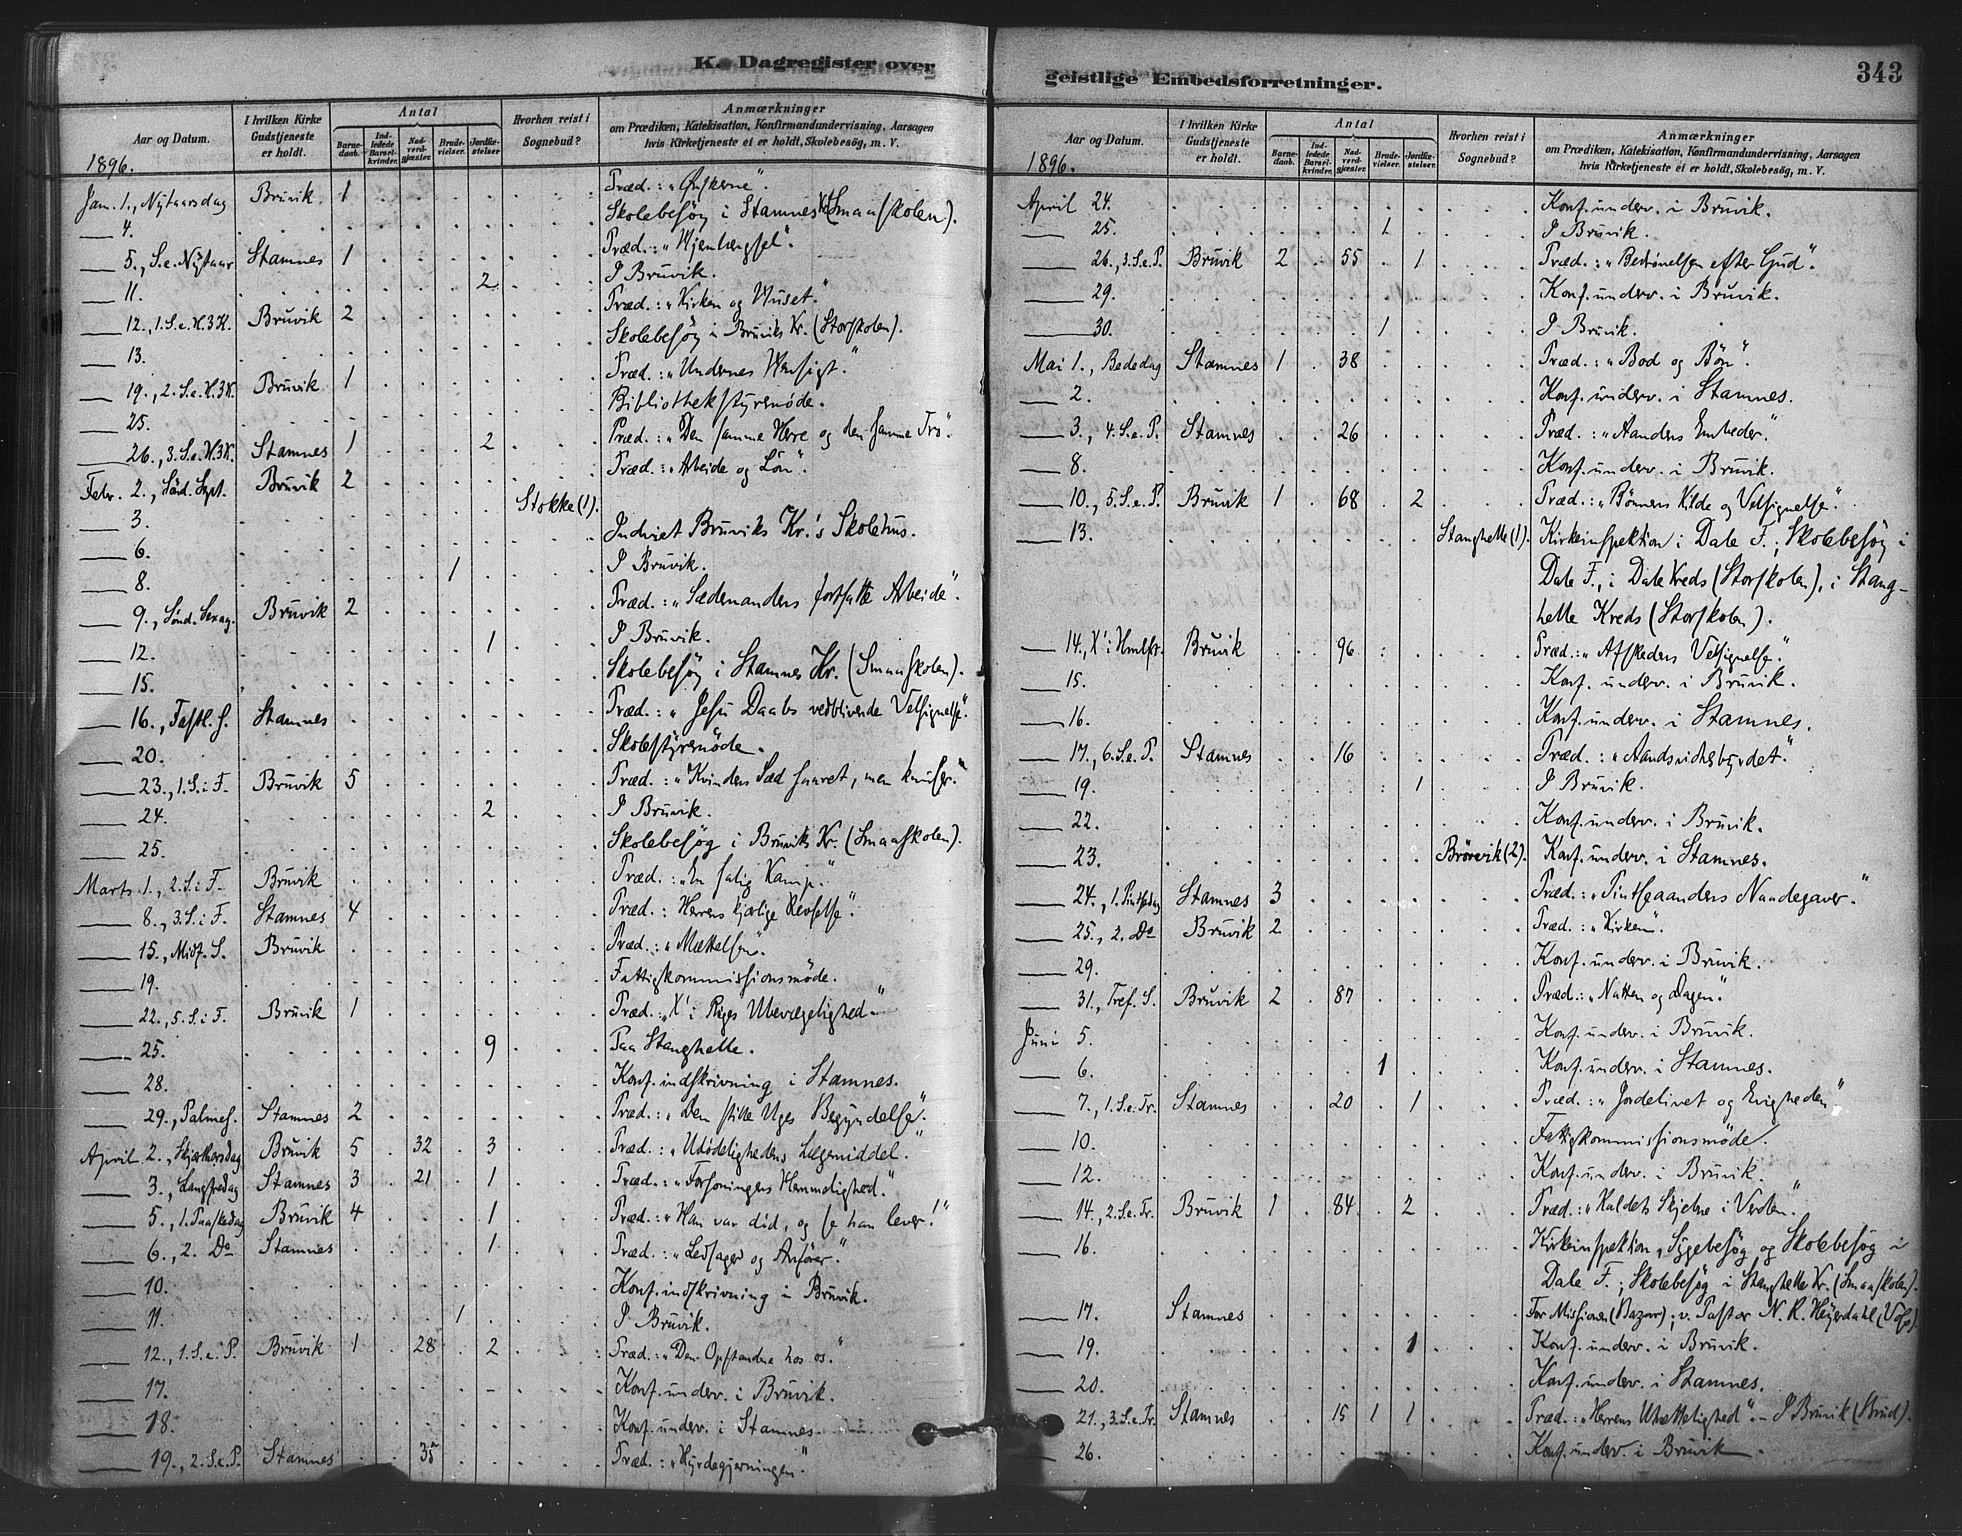 K. Dagregister over
Aar og Datum.
I hvilken Kirke Gudstjeneste er holdt.
Antal
Barnedaab.
Indledede Barselkvinder.
Nadverdgjæster.
Brudevielser.
Jordfæstelser
Hvorhen reist i Sognebud?
Anmærkninger
om Prædiken, Katekisation, Konfirmandundervisning, Aarsagen
hvis Kirketjeneste ei er holdt, Skolebesög, m. V.
1896.
Jan. 1., Nytaarsdag Bruvik 1 Præd.: „Ønskerne".
4. Skolebesøg i Stamnes Kr. (Smaaskolen).
5., S. e. Nytaar Stamnes 1 Præd.: „Hjemlængsel".
11. 2 I Bruvik.
12., 1. S. e. H.3K. Bruvik 2 Præd.: „Kirken og Huset."
13. Skolebesøg i Bruviks Kr. (Storskolen).
19., 2. S. e. H.3K. Bruvik 1 Præd.: „Undernes Hensigt."
25. Bibliothekstyremøde.
26., 3. S. e. H.3K. Stamnes 1 2 Præd.: „Den samme Herre og den samme Tro".
Febr. 2., Sönd. Sept. Bruvik 2 Præd.: „Arbeide og Lön".
3. Stokke (1).
6. Indviet Bruviks Kr.'s Skolehus.
8. 1 I Bruvik.
9., Sönd. Sexag. Bruvik 2 Præd.: „Sædemandens fortsatte Arbeide".
12. 1 I Bruvik.
15. Skolebesøg i Stamnes Kr. (Smaaskolen).
16., Fastl. S. Stamnes Præd.: „Jesu Daabs vedblivende Velsignelse".
20. Skolestyremöde.
23., 1. S. i F. Bruvik 5 Præd.: „Kvindens Sæd saaret, men knuser."
24. 2 I Bruvik.
25. Skolebesøg i Bruviks Kr. (Smaaskolen).
Marts 1., 2. S. i F. Bruvik Præd.: „En salig Kamp."
8., 3. S. i F. Stamnes 4 Præd.: Herrens kjærlige Revselse".
15., Midf. S. Bruvik Præd.: „Mættelsen"
19. Fattigkommissionsmöde.
22., 5. S. i F. Bruvik 1 Præd.: „X' i Riges Ubevægelighed."
25. 9 Paa Stanghelle.
28. Konf. indskrivning i Stamnes.
29., Palmes. Stamnes 2 Præd.: „Den stille Uges Begyndelse".
April 2., Skjærthorsdag Bruvik 5 32 3 Præd.: „Udödelighedens Lægemiddel."
3., Langfredag Stamnes 3 21 1 Præd.: „Forsoningens Hemmelighed."
5., 1. Paaskedag Bruvik 4 1 Præd.: „Han var död, og se han lever!"
6., 2. Do Stamnes 1 Præd.: „Ledsager og Anförer."
10. Konf. indskrivning i Bruvik.
11. 1 I Bruvik.
12., 1. S. e. P. Bruvik 1 28 2 Præd.: „Den Opstandne hos os."
17. Konf. underv. i Bruvik.
18. Konf. underv. i Stamnes
19., 2. S. e. P. Stamnes 35 Præd.: „Hyrdegjerningen".
geistlige Embedsforretninger.
343
Aar og Datum.
I hvilken Kirke Gudstjeneste er holdt.
Antal
Barnedaab.
Indledede Barselkvinder.
Nadverdgjæster.
Brudevielser.
Jordfæstelser.
Hvorhen reist i Sognebud?
Anmærkninger
om Prædiken, Katekisation, Konfirmandundervisning, Aarsagen
hvis Kirketjeneste ei er holdt, Skolebesög, m. V.
1896.
April 24. Konf. underv. i Bruvik.
25. 1 I Bruvik.
26., 3. S. e. P. Bruvik 2 55 1 Præd.: „Bedrövelsen efter Gud".
29. Konf. underv. i Bruvik.
30. 1 I Bruvik.
Mai 1., Bededag Stamnes 1 38 Præd.: „Bod og Bön".
2. Konf. underv. i Stamnes.
3., 4. S. e. P. Stamnes 26 Præd.: „Aandens Embeder".
8. Konf. underv. i Bruvik.
10., 5. S. e. P. Bruvik 1 68 2 Præd.: „Bönnens Kilde og Velsignelse".
13. Stanghelle (1). Kirkeinspektion i Dale F.; Skolebesøg i
Dale F., i Dale Kreds (Storskolen), i Stang-
helle Kreds (Storskolen).
14., X' i Hmlft. Bruvik 96 Præd.: „Afskedens Velsignelse".
15. Konf. underv. i Bruvik.
16. Konf. underv. i Stamnes.
17., 6. S. e. P. Stamnes 16 Præd.: „Aandsvidnesbyrdet."
19. 1 I Bruvik.
22. Konf. underv. i Bruvik.
23. Brörvik (2). Konf. underv. i Stamnes.
24., 1. Pintsedag Stamnes 3 Præd.: „Pintseaandens Naadegaver."
25., 2. Do Bruvik 2 Præd.: „Kirken".
29. Konf. underv. i Bruvik.
31., Tref. S. Bruvik 2 87 Præd.: „Natten og Dagen."
Juni 5. Konf. underv. i Bruvik.
6. 1 Konf. underv. i Stamnes.
7., 1. S. e. Tr. Stamnes 20 1 Præd.: „Jordelivet og Evigheden"
10. Fattigkommissionsmöde.
12. Konf. underv. i Bruvik.
14., 2. S. e. Tr. Bruvik 1 84 2 Præd.: „Kaldets Skjebne i Verden."
16. Kirkeinspektion, Sygebesøg og Skolebesøg i
Dale F.; Skolebesøg i Stanghelle Kr. (Smaaskolen).
17. Stamnes For Missionen (Bazar); v. Pastor N. R. Heyerdahl (Voss).
19. 1 Konf. underv. i Bruvik.
20. Konf. underv. i Stamnes.
21., 3. S. e. Tr. Stamnes 15 1 1 Præd.: „Herrens Utrættelighed". – I Bruvik (Brud).
26. Konf. underv. i Bruvik